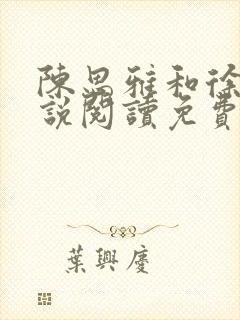 陳思雅和徐
說閱讀免費
葉興慶